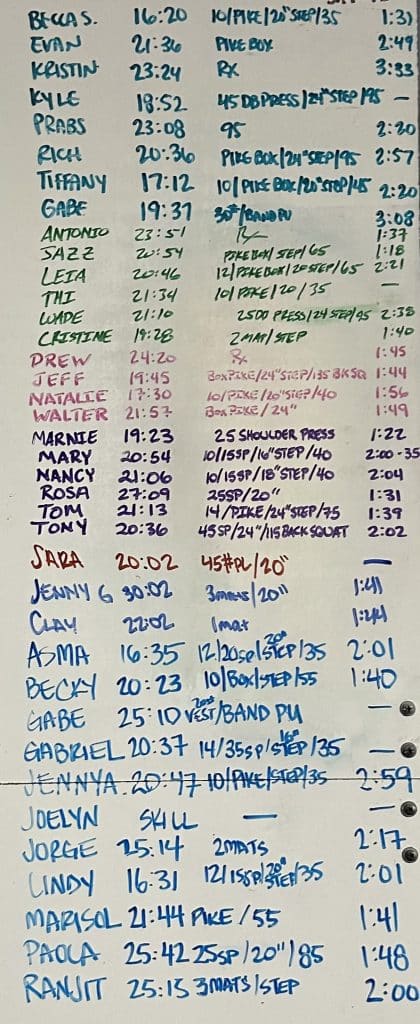 BECCA S. 16:20 10/PIKE/20"STEP/35 1:31
EVAN 21:36 PIKE BOX 2:49
KRISTIN 23:24 RX 3:33
KYLE 18:52 45 DB PRESS/24"STEP/95 —
PRABS 23:08 95 2:20
RICH 20:36 PIKE BOX/24"STEP/95 2:57
TIFFANY 17:12 10/PIKE BOX/20"STEP/45 2:20
GABE 19:37 30"/BAND PU 3:08
ANTONIO 23:51 Rx 1:37
SAZZ 20:54 PIKE BOX/STEP/65 1:18
LEIA 20:46 12/PIKE BOX/20 STEP/65 2:21
THI 21:34 10/PIKE/20/35 —
WADE 21:10 25DD PRESS/24 STEP/95 2:38
CRISTINE 19:28 2 MAT/STEP 1:40
DREW 24:20 Rx 1:45
JEFF 19:45 BOX PIKE/24"STEP/135 BK SQ 1:44
NATALIE 17:30 10/PIKE/20"STEP/40 1:56
WALTER 21:57 BOX PIKE/24" 1:49
MARNIE 19:23 25 SHOULDER PRESS 1:22
MARY 20:54 10/15SP/16"STEP/40 2:00-35
NANCY 21:06 10/15SP/18"STEP/40 2:04
ROSA 27:09 25SP/20" 1:31
TOM 21:13 14/PIKE/24"STEP/75 1:39
TONY 20:36 45SP/24"/115 BACK SQUAT 2:02
SARA 20:02 45#PL/20" —
JENNY G 30:02 3mats/20" 1:41
CLAY 22:02 1mat 1:24
ASMA 16:35 12/20SP/20"STEP/35 2:01
BECKY 20:23 10/BOX/STEP/55 1:40
GABE 25:10 20# VEST/BAND PU —
GABRIEL 20:37 14/35SP/16"STEP/35 —
JENNYA. 20:47 10/PIKE/STEP/35 2:59
JOELYN SKILL — —
JORGE 25:14 2MATS 2:17
LINDY 16:31 12/15SP/20"STEP/35 2:01
MARISOL 21:44 PIKE/55 1:41
PAOLA 25:42 25SP/20"/85 1:48
RANJIT 25:15 3MATS/STEP 2:00